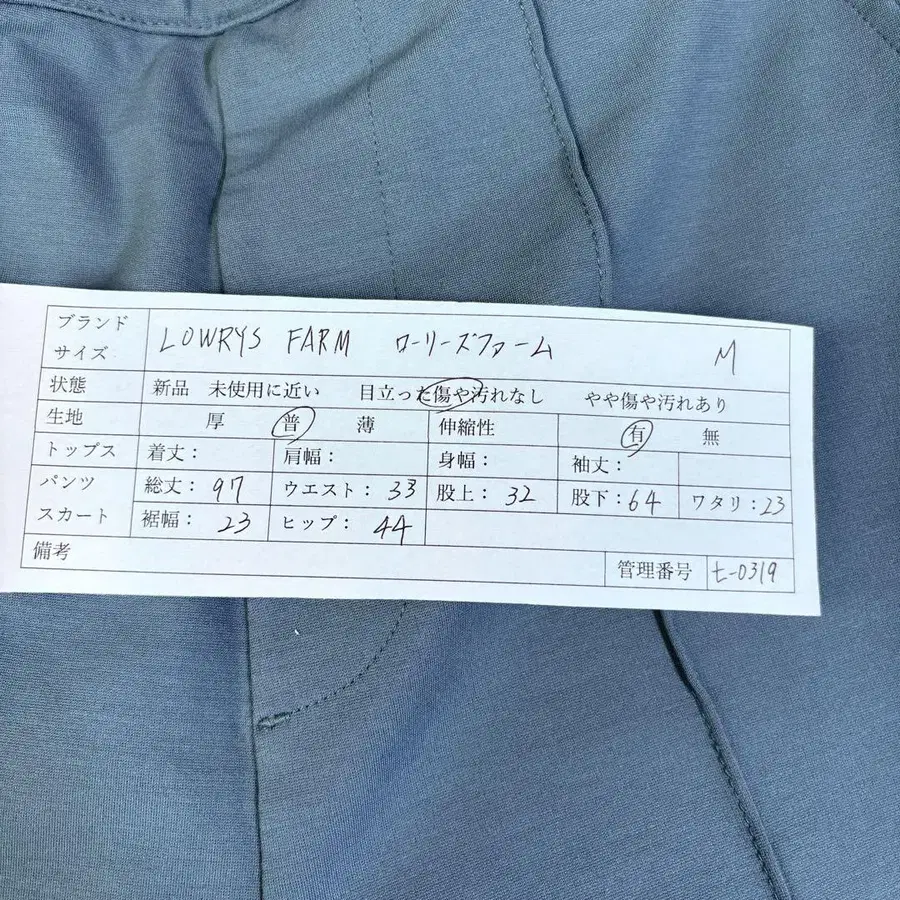 ブランド
サイズ
LOWRYS FARM ローリーズファーム M
状態 新品 未使用に近い 目立った傷や汚れなし やや傷や汚れあり
生地 厚 普 薄 伸縮性 有 無
トップス 着丈: 肩幅: 身幅: 袖丈:
パンツ 総丈: 97 ウエスト: 33 股上: 32 股下: 64 ワタリ: 23
スカート 裾幅: 23 ヒップ: 44
備考 管理番号 t-0319